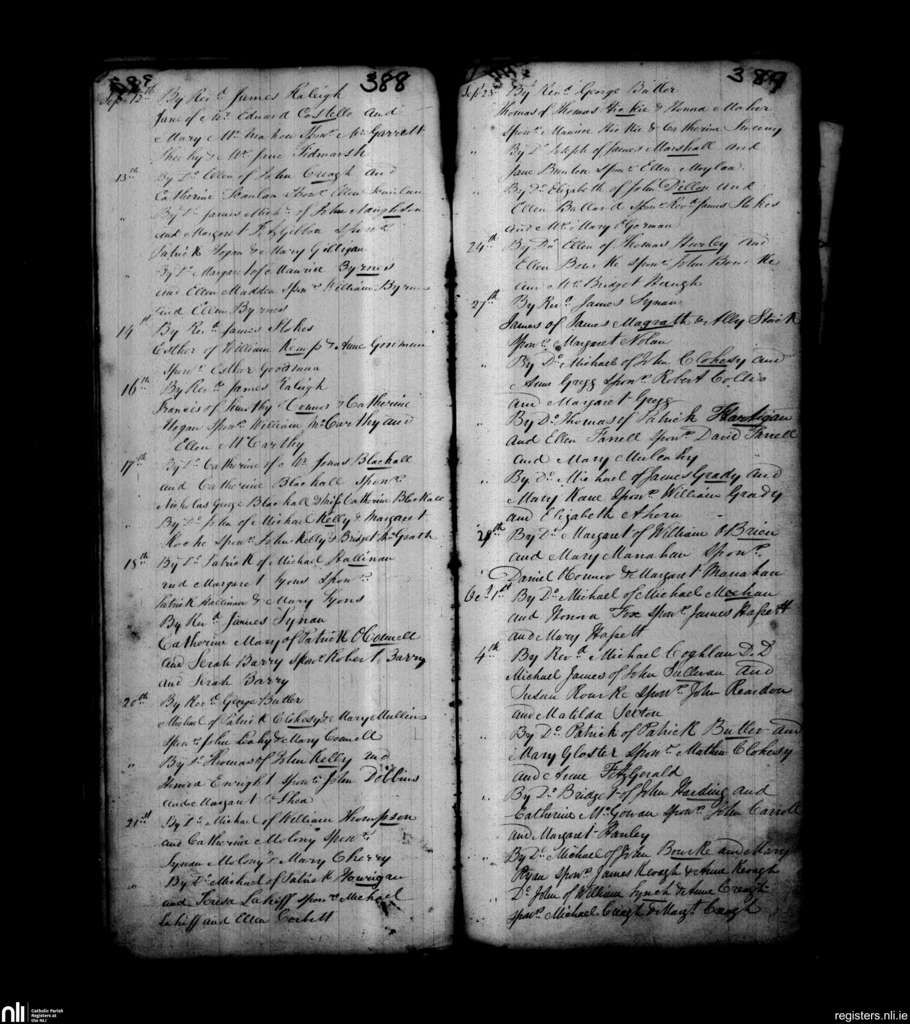 388
Sep. 13th By Revd. James Raleigh
Jane of Mr. Edward Costello and
Mary McMahon Spons. Mr. Garrett
Sheehy & Mrs. Jane Tidmarsh
13th By Do. Ellen of John Creagh and
Catherine Scanlan Spons. Ellen Scanlan
" By Do. James of John Naughton
and Margaret FitzGibbon Spons.
Patrick Hogan & Mary Gilligan
" By Do. Margaret of Maurice Byrnes
and Ellen Madden Spons. William Byrnes
and Ellen Byrnes
14th By Revd. James Stokes
Esther of William Kemp & Anne Goodman
Spons. Esther Goodman
16th By Revd. James Raleigh
Francis of Timothy Connor & Catherine
Hogan Spons. William McCarthy and
Ellen McCarthy
17th By Do. Catherine of Mr. Jonas Blackall
and Catherine Blackall Spons.
Nicholas George Blackall & Miss Catherine Blackall
" By Do. John of Michael Kelly & Margaret
Spons. John Kelly & Bridget McGrath
18th By Do. Patrick of Michael Hallinan
and Margaret Lyons Spons.
Patrick Hallinan & Mary Lyons
By Revd. James Synan
Catherine Mary of Patrick O'Connell
and Sarah Barry Spons. Robert Barry
and Sarah Barry
20th By Revd. George Butler
Michael of Patrick Clohesy & Mary Mullins
Spons. John Leahy & Mary Connell
" By Do. Thomas of John Kelly and
Honora Enright Spons. John Dobbins
and Margaret O'Shea
21st By Do. Michael of William Thompson
and Catherine Molony Spons.
Synan Molony & Mary Cherry
" By Do. Michael of Patrick Hourigan
and Teresa Lahiff Spons. Michael
Lahiff and Ellen Corbett
389
Sep. 23 By Revd. George Butler
Thomas of Thomas Hockie & Honora Maher
Spons. Maurice Hockie & Catherine Sweeny
" By Do. Joseph of James Marshall and
Jane Spons. Ellen
" By Do. Elizabeth of John Dillon and
Ellen Ballard Spons. Revd. James Stokes
and Mrs. Mary O'Gorman
24th By Do. Ellen of Thomas Hurley and
Ellen Bourke Spons. John Bourke
and Mrs. Bridget Keough
27th By Revd. James Synan
James of James Magrath & Ally Stack
Spons. Margaret Nolan
" By Do. Michael of John Clohesy and
Anne Gregg Spons. Robert Collis
and Margaret Gregg
" By Do. Thomas of Patrick Hartigan
and Ellen Farrell Spons. David Farrell
and Mary Mulcahy
" By Do. Michael of James Grady and
Mary Kane Spons. William Grady
and Elizabeth Ahern
29th By Do. Margaret of William O'Brien
and Mary Manahan Spons.
Daniel Connor & Margaret Manahan
Oc. 1st By Do. Michael of Michael Meehan
and Honora Fox Spons. James Hassett
and Mary Hassett
4th By Revd. Michael Coghlan D.D
Michael James of John Sullivan and
Susan Rourke Spons. John Reardon
and Matilda Sexton
" By Do. Patrick of Patrick Butler and
Mary Gloster Spons. Mathew Clohesy
and Anne FitzGerald
" By Do. Bridget of John Harding and
Catherine McGowan Spons. John Carroll
and Margaret Hanley
" By Do. Michael of John Bourke and Mary
Ryan Spons. James Keogh & Anne Keogh
" Do. John of William Lynch & Anne Creagh
Spons. Michael Creagh & Margt. Creagh
nli Catholic Parish
Registers at
the NLI
registers.nli.ie